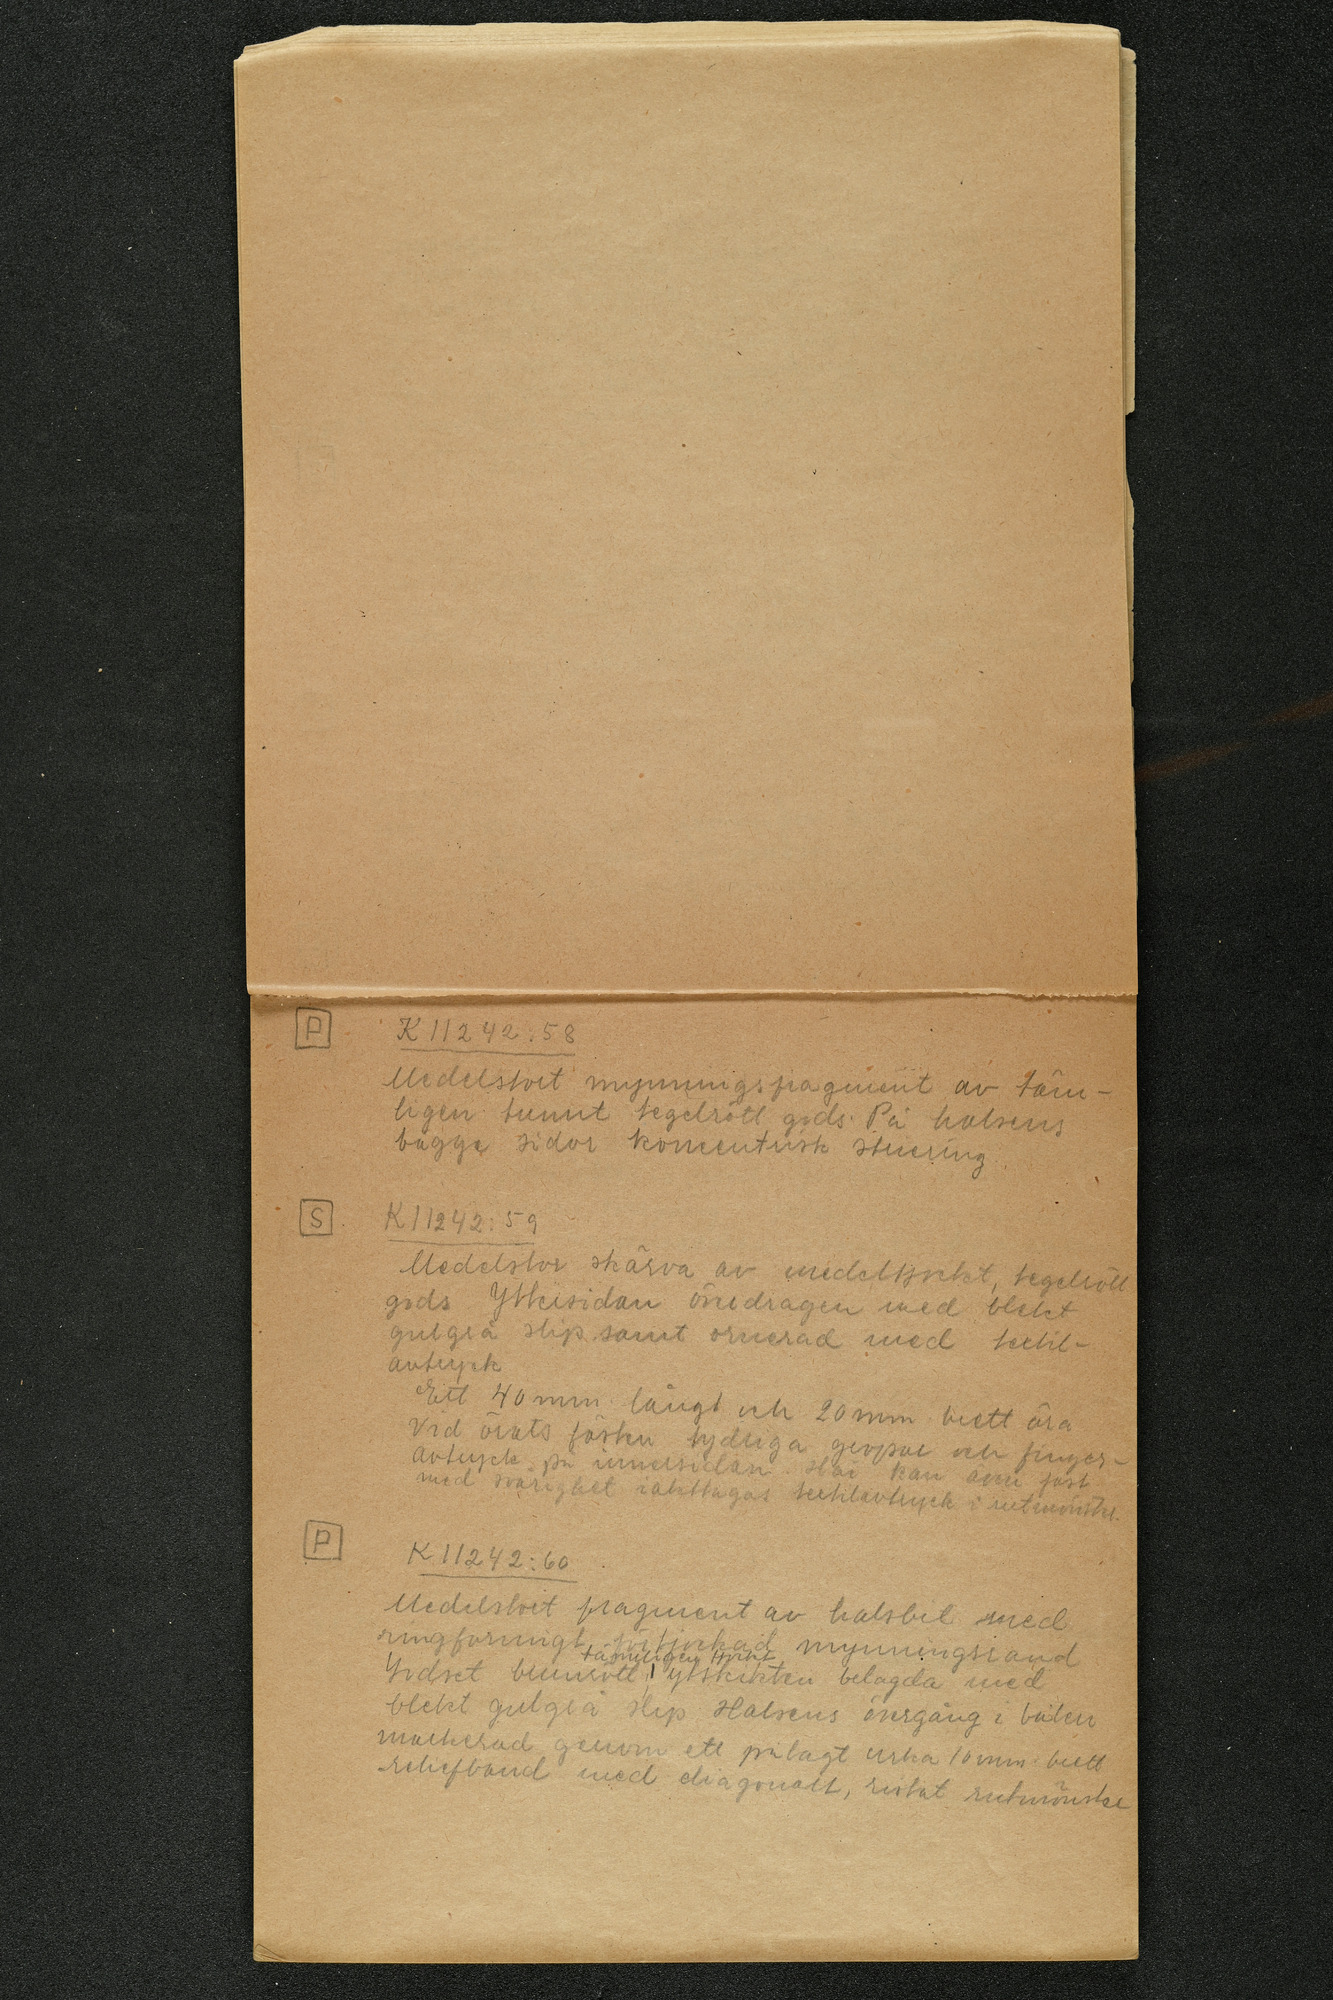 P K11242:58
Medelstort mynningsfragment av täm-
ligen tunnt tegelrött gods. På halsens
bägge sidor koncentrisk striering.
S K11242:59
Medelstor skärva av medeltjockt, tegelrött
gods Yttersidan överdragen med blekt
gulgrå slip samt ornerad med textil-
avtryck
Ett 40 mm långt och 20 mm brett öra
Vid örats fäste tydliga gropar och finger-
avtryck på innersidan. Här kan även fast
med svårighet iakttagas textilavtryck i rutmönster.
P K11242:60
Medelstort fragment av halsbit med
ringformigt, förtjockad mynningsrand
tämligen tjockt
Godset brunrött, ytskikten belagda med
blekt gulgrå slip Halsens övergång i buken
markerad genom ett pålagt cirka 10 mm brett
reliefband med diagonalt, ristat rutmönster